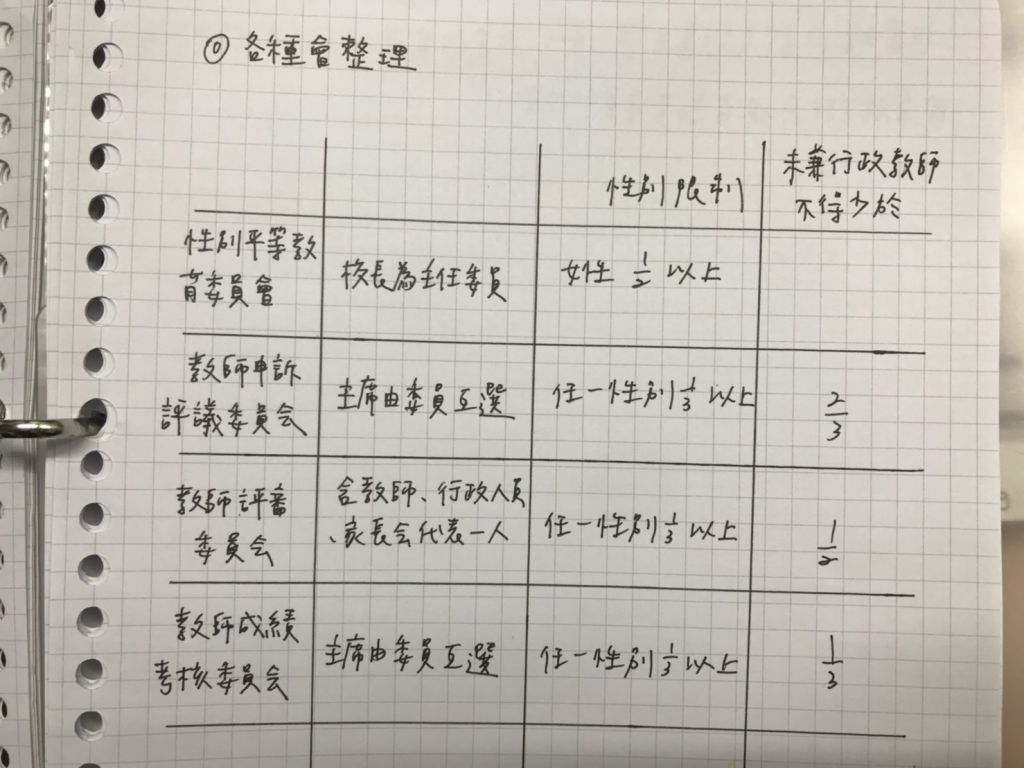 ◎ 各種會整理
性別限制
未兼行政教師
不得少於
性別平等教
育委員會
校長為主任委員
女性 1/2 以上
教師申訴
評議委員会
主席由委員互選
任一性別 1/3 以上
2/3
教師評審
委員会
含教師、行政人員
、家長会代表一人
任一性別 1/3 以上
1/2
教師成績
考核委員会
主席由委員互選
任一性別 1/3 以上
1/3